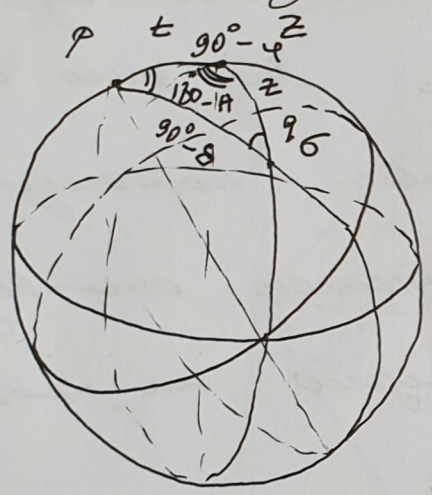 P t Z
90°-φ
180-A z
90°-δ q σ